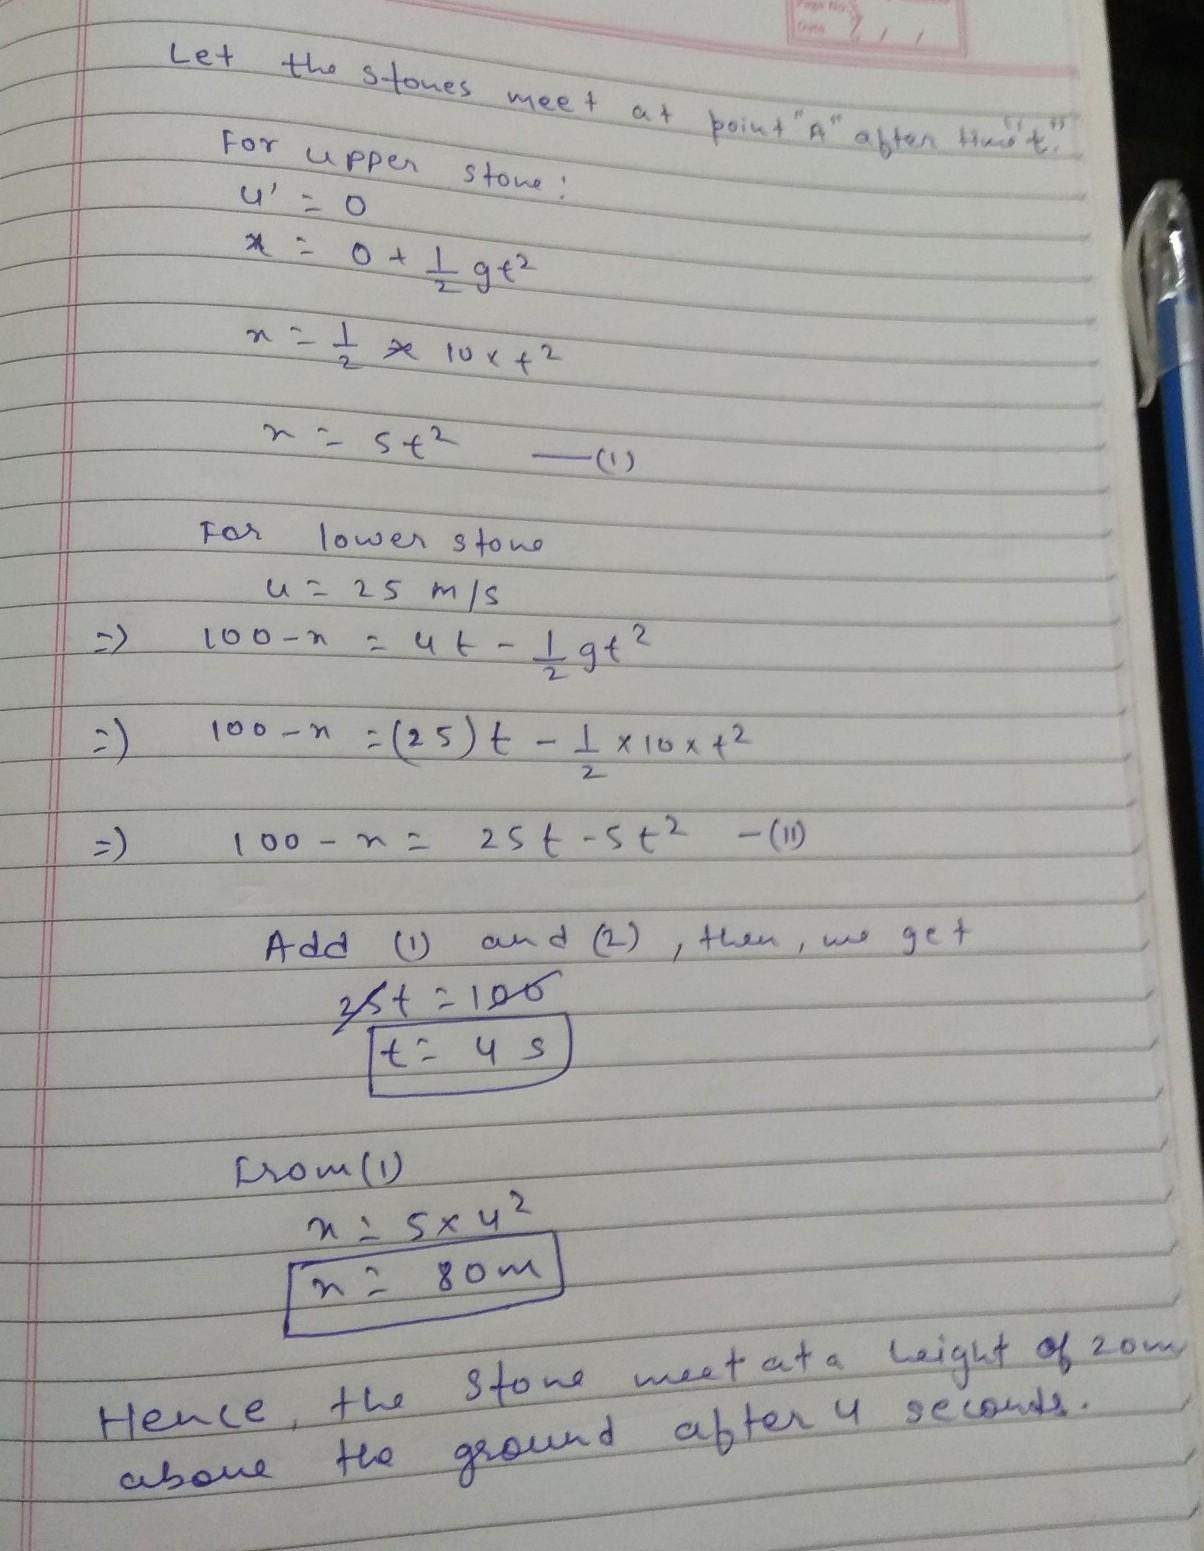 Page No.
Date
Let the stones meet at point "A" after time "t".
For upper stone:
u' = 0
x = 0 + 1/2 gt²
x = 1/2 × 10 × t²
x = 5t² —(1)
For lower stone
u = 25 m/s
=) 100 - x = ut - 1/2 gt²
=) 100 - x = (25) t - 1/2 × 10 × t²
=) 100 - x = 25t - 5t² -(11)
Add (1) and (2), then, we get
25t = 100
t = 4 s
From (1)
x = 5 × 4²
x = 80m
Hence, the stone meet at a height of 20m
above the ground after 4 seconds.